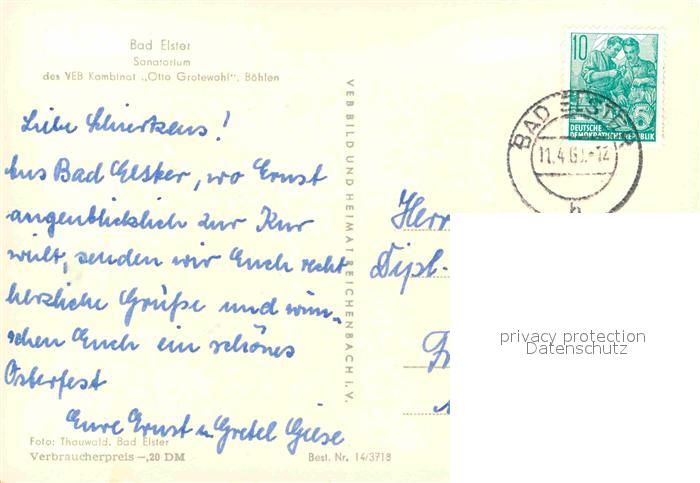 Bad Elster
Sanatorium
des VEB Kombinat „Otto Grotewohl“, Böhlen
Liebe Schierkens!
Aus Bad Elster, wo Ernst
augenblicklich zur Kur
weilt, senden wir Euch recht
herzliche Grüße und wün-
schen Euch ein schönes
Osterfest
Eure Ernst u Gretel Giese
Foto: Thauwald, Bad Elster
Verbraucherpreis —,20 DM
Best. Nr. 14/3718
VEB BILD UND HEIMAT REICHENBACH I. V.
10
DEUTSCHE
DEMOKRATISCHE REPUBLIK
BAD ELSTER
11.4.6
-12
b
Herr
Dipl.-
privacy protection
Datenschutz